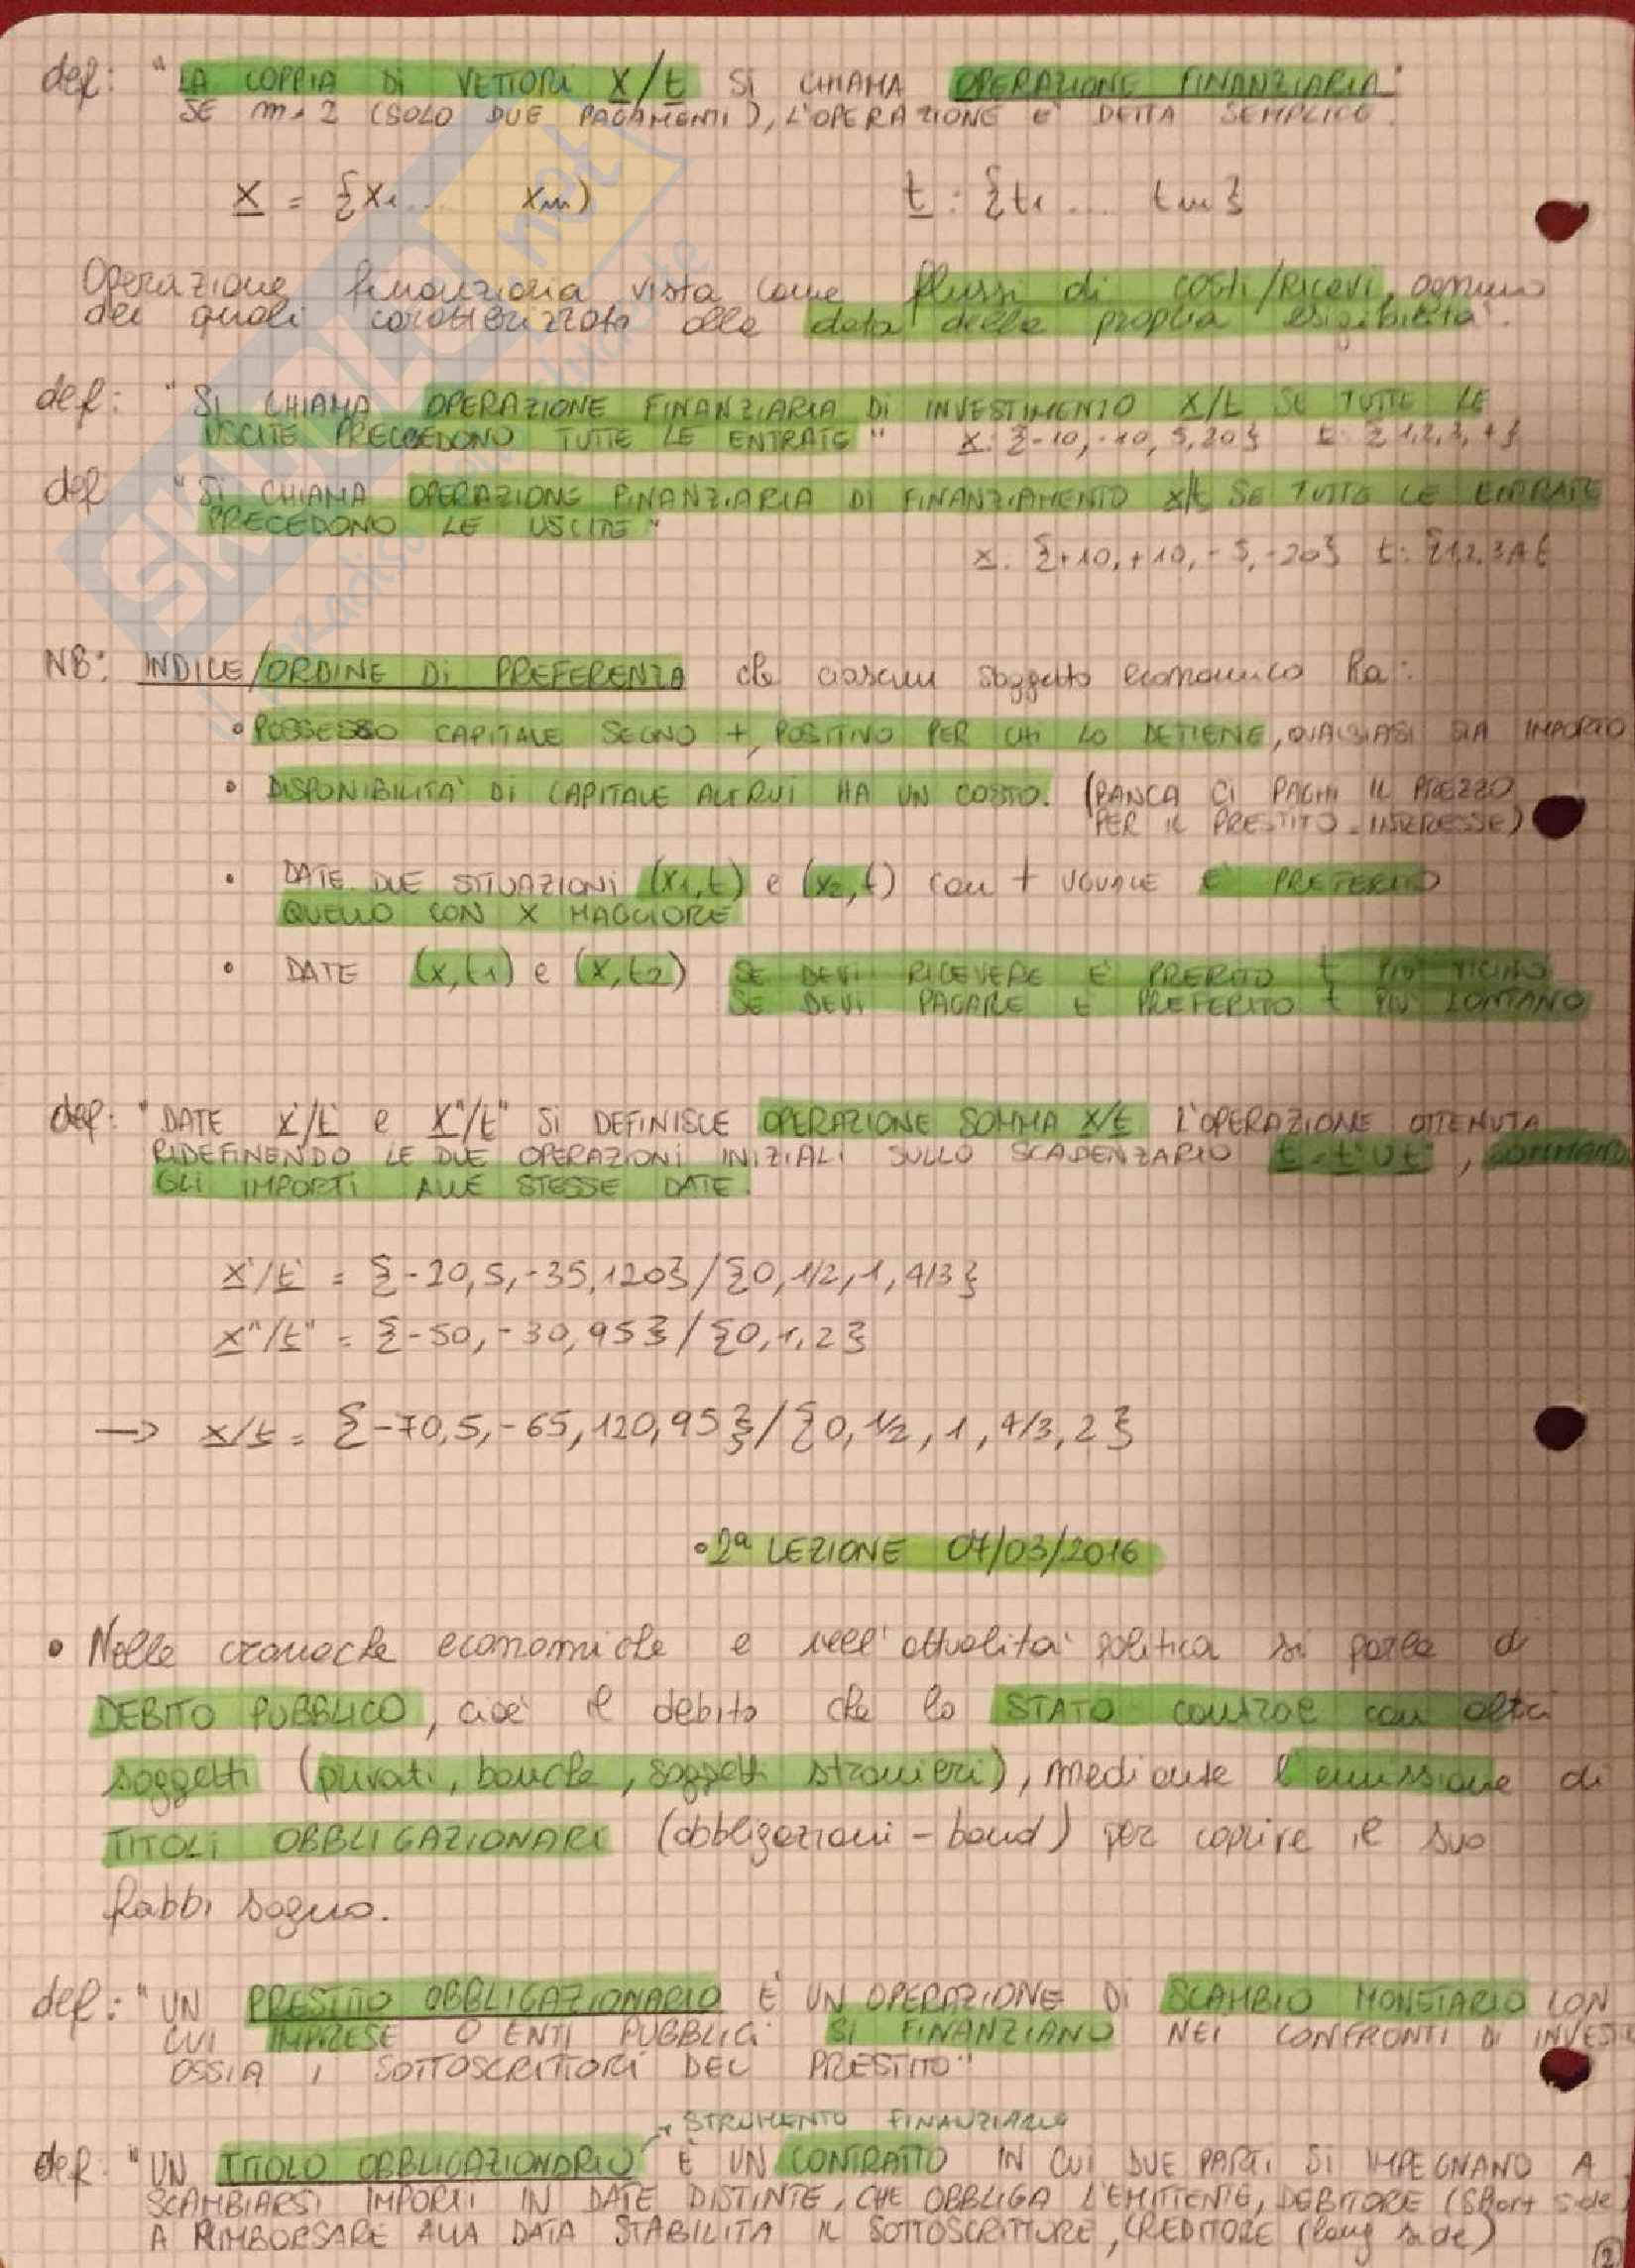 def: "LA COPPIA DI VETTORI x/t SI CHIAMA OPERAZIONE FINANZIARIA"
SE m=2 (SOLO DUE PAGAMENTI), L'OPERAZIONE E' DETTA SEMPLICE.
x = {x1... xm) t : {t1 ... tm}
Operazione finanziaria vista come flussi di costi/Ricavi, ognuno
dei quali caratterizzato alla data della propria esigibilità.
def: "SI CHIAMA OPERAZIONE FINANZIARIA DI INVESTIMENTO x/t SE TUTTE LE
USCITE PRECEDONO TUTTE LE ENTRATE" x: {-10, -10, 5, 20} t: {1,2,3,4}
def "SI CHIAMA OPERAZIONE FINANZIARIA DI FINANZIAMENTO x/t SE TUTTE LE ENTRATE
PRECEDONO LE USCITE"
x: {+10, +10, -5, -20} t: {1,2,3,4}
NB: INDICE/ORDINE DI PREFERENZA che ciascun soggetto economico ha:
• POSSESSO CAPITALE SEGNO +, POSITIVO PER CHI LO DETIENE, QUALSIASI SIA IMPORTO
• DISPONIBILITA' DI CAPITALE ALTRUI HA UN COSTO. (BANCA CI PAGHI IL PREZZO
PER IL PRESTITO = INTERESSE)
• DATE DUE SITUAZIONI (x1,t) e (x2,t) con t UGUALE E' PREFERITO
QUELLO CON X MAGGIORE
• DATE (x,t1) e (x,t2) SE DEVI RICEVERE E' PRERITO t PIÙ VICINO
SE DEVI PAGARE E PREFERITO t PIÙ LONTANO
def: "DATE x'/t' e x"/t" SI DEFINISCE OPERAZIONE SOMMA x/t L'OPERAZIONE OTTENUTA
RIDEFINENDO LE DUE OPERAZIONI INIZIALI SULLO SCADENZARIO t = t' U t", SOMMANDO
GLI IMPORTI ALLE STESSE DATE.
x'/t' = {-20,5,-35,120}/{0,1/2,1,4/3}
x"/t" = {-50,-30,95}/{0,1,2}
→ x/t = {-70,5,-65,120,95}/{0,1/2,1,4/3,2}
• 2ª LEZIONE 07/03/2016
• Nelle cronache economiche e nell'attualità politica si parla di
DEBITO PUBBLICO, cioè il debito che lo STATO contrae con altri
soggetti (privati, banche, soggetti stranieri), mediante l'emissione di
TITOLI OBBLIGAZIONARI (obbligazioni - bond) per coprire il suo
fabbisogno.
def: "UN PRESTITO OBBLIGAZIONARIO E' UN OPERAZIONE DI SCAMBIO MONETARIO CON
CUI IMPRESE O ENTI PUBBLICI SI FINANZIANO NEI CONFRONTI DI
OSSIA I SOTTOSCRITTORI DEL PRESTITO"
→ STRUMENTO FINANZIARIO
def: "UN TITOLO OBBLIGAZIONARIO È UN CONTRATTO IN CUI DUE PARTI SI IMPEGNANO A
SCAMBIARSI IMPORTI IN DATE DISTINTE, CHE OBBLIGA L'EMITTENTE, DEBITORE (short side)
A RIMBORSARE ALLA DATA STABILITA IL SOTTOSCRITTORE, CREDITORE (long side)
2
SKUOLA.net